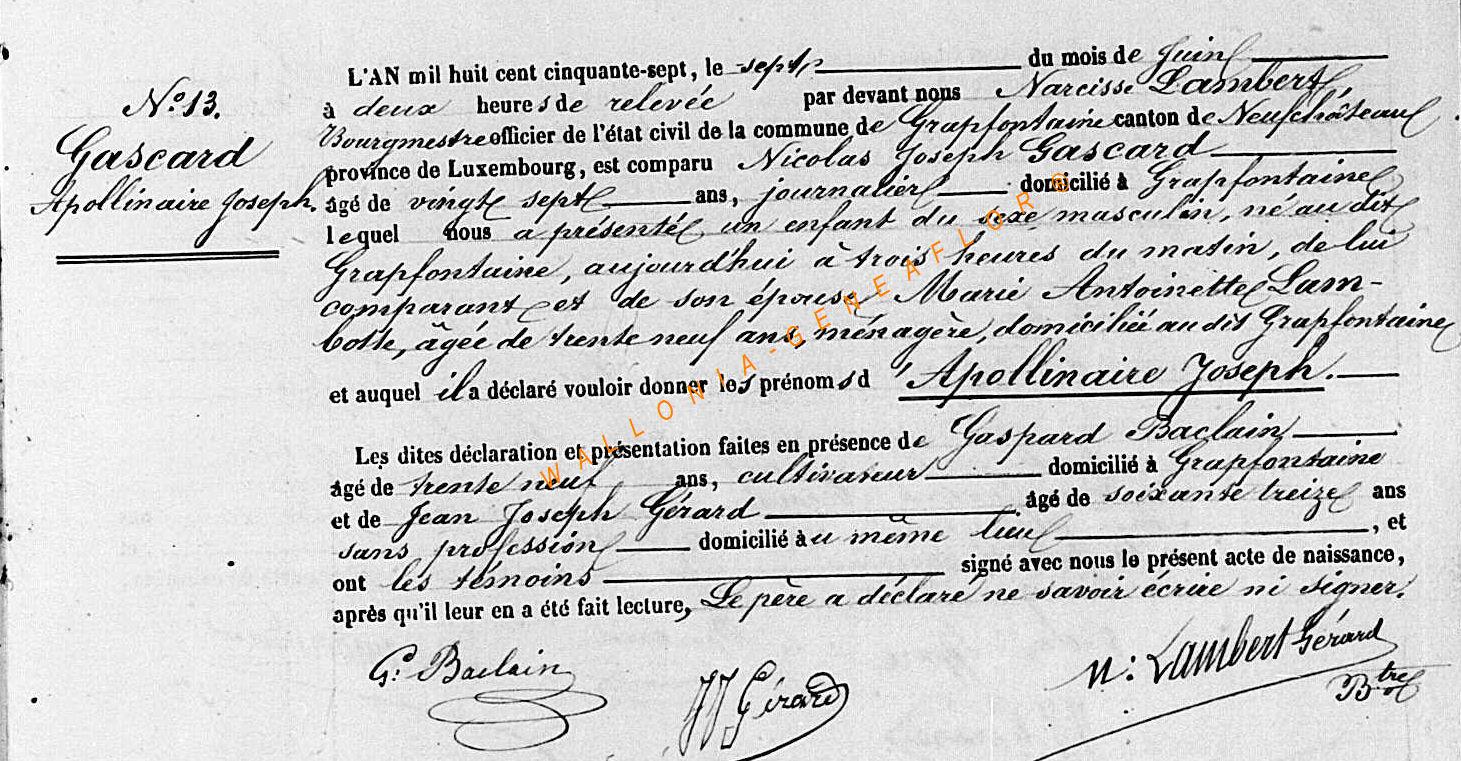 N.° 13.
Gascard
Apollinaire Joseph.
L'AN mil huit cent cinquante-sept, le sept du mois de Juin
à deux heures de relevée par devant nous Narcisse Lambert,
Bourgmestre officier de l'état civil de la commune de Grapfontaine canton de Neufchâteau
province de Luxembourg, est comparu Nicolas Joseph Gascard
âgé de vingt sept ans, journalier domicilié à Grapfontaine
lequel nous a présenté un enfant du sexe masculin, né au dit
Grapfontaine, aujourd'hui à trois heures du matin, de lui
comparant et de son épouse Marie Antoinette Lam-
botte, âgée de trente neuf ans, ménagère, domiciliée au dit Grapfontaine
et auquel il a déclaré vouloir donner les prénoms d'Apollinaire Joseph.
Les dites déclaration et présentation faites en présence de Gaspard Baclain
âgé de trente neuf ans, cultivateur domicilié à Grapfontaine
et de Jean Joseph Gérard âgé de soixante treize ans
sans profession domicilié au même lieu, et
ont les témoins signé avec nous le présent acte de naissance,
après qu'il leur en a été fait lecture, Le père a déclaré ne savoir écrire ni signer.
G. Baclain
JJ Gérard
N: Lambert Gérard
Btre
WALLONIA-GENEAFLOR®